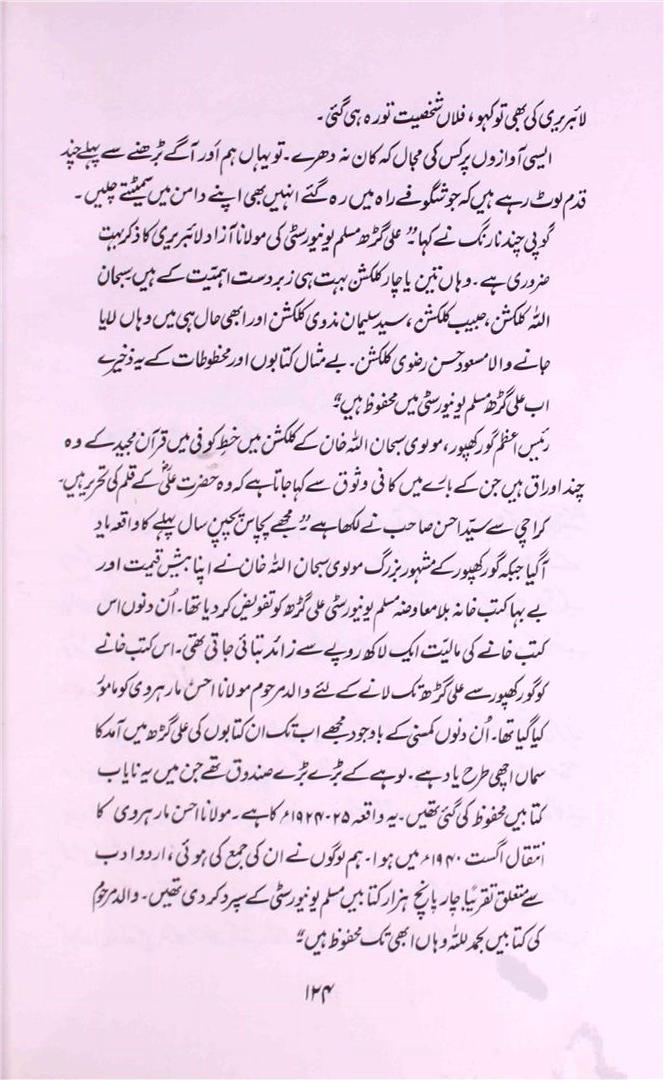 لائبریری کی بھی تو کہو، فلاں شخصیت تو رہ ہی گئی۔
ایسی آوازوں پر کس کی مجال کہ کان نہ دھرے۔ تو یہاں ہم اور آگے بڑھنے سے پہلے چند
قدم لوٹ رہے ہیں کہ جو شگوفے راہ میں رہ گئے انہیں بھی اپنے دامن میں سمیٹتے چلیں۔
گوپی چند نارنگ نے کہا: "علی گڑھ مسلم یونیورسٹی کی مولانا آزاد لائبریری کا ذکر بہت
ضروری ہے۔ وہاں تین یا چار کلکشن بہت ہی زبردست اہمیّت کے ہیں۔ سبحان
اللہ کلکشن، حبیب کلکشن، سید سلیمان ندوی کلکشن اور ابھی حال ہی میں وہاں لایا
جانے والا مسعود حسن رضوی کلکشن۔ بے مثال کتابوں اور مخطوطات کے یہ ذخیرے
اب علی گڑھ مسلم یونیورسٹی میں محفوظ ہیں"
رئیس اعظم گورکھپور، مولوی سبحان اللہ خان کے کلکشن میں خط کوفی میں قرآن مجید کے وہ
چند اوراق ہیں جن کے بارے میں کافی وثوق سے کہا جاتا ہے کہ وہ حضرت علیؓ کے قلم کی تحریر ہیں۔
کراچی سے سیّد احسن صاحب نے لکھا ہے: "مجھے پچاس پچپن سال پہلے کا واقعہ یاد
آگیا جبکہ گورکھپور کے مشہور بزرگ مولوی سبحان اللہ خان نے اپنا بیش قیمت اور
بے بہا کتب خانہ بلا معاوضہ مسلم یونیورسٹی علی گڑھ کو تفویض کر دیا تھا۔ اُن دنوں اس
کتب خانے کی مالیّت ایک لاکھ روپے سے زائد بتائی جاتی تھی۔ اس کتب خانے
کو گورکھپور سے علی گڑھ تک لانے کے لئے والد مرحوم مولانا احسن مارہروی کو مامور
کیا گیا تھا۔ اُن دنوں کمسنی کے باوجود مجھے اب تک ان کتابوں کی علی گڑھ میں آمد کا
سماں اچھی طرح یاد ہے۔ لوہے کے بڑے بڑے صندوق تھے جن میں یہ نایاب
کتابیں محفوظ کی گئی تھیں۔ یہ واقعہ ۲۵-۱۹۲۴ء کا ہے۔ مولانا احسن مارہروی کا
انتقال اگست ۱۹۴۰ء میں ہوا۔ ہم لوگوں نے ان کی جمع کی ہوئی، اردو ادب
سے متعلق تقریباً چار پانچ ہزار کتابیں مسلم یونیورسٹی کے سپرد کر دی تھیں۔ والد مرحوم
کی کتابیں بحمد للہ وہاں ابھی تک محفوظ ہیں"
۱۲۴